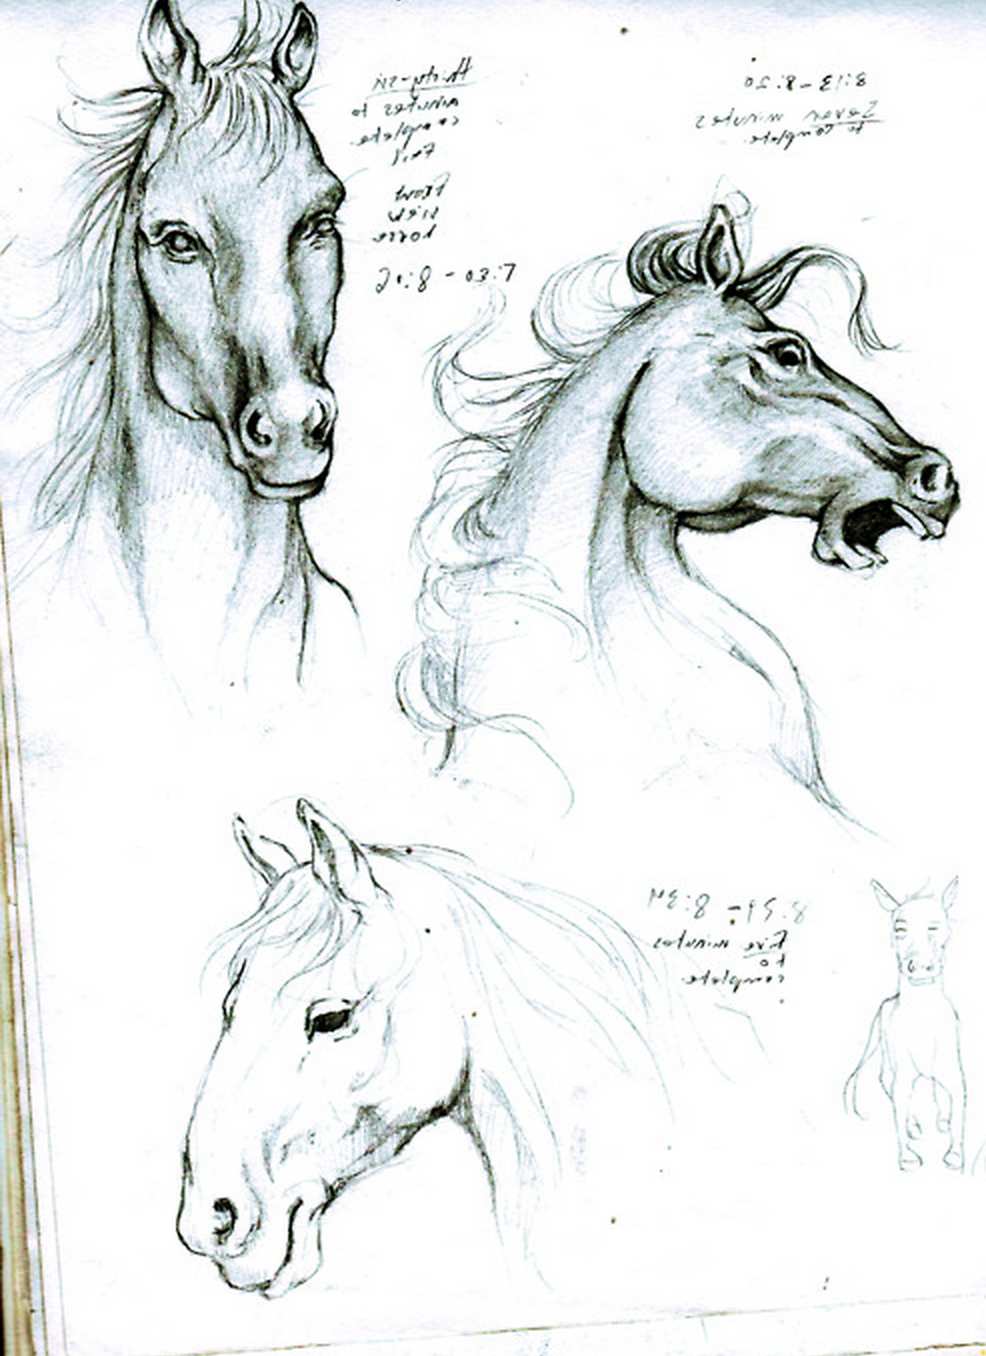 Thirty-six
minutes to
complete.
Front
view
horse
7:30 - 8:06
8:13 - 8:20
Seven minutes
to complete.
8:29 - 8:34
Five minutes
to
complete.